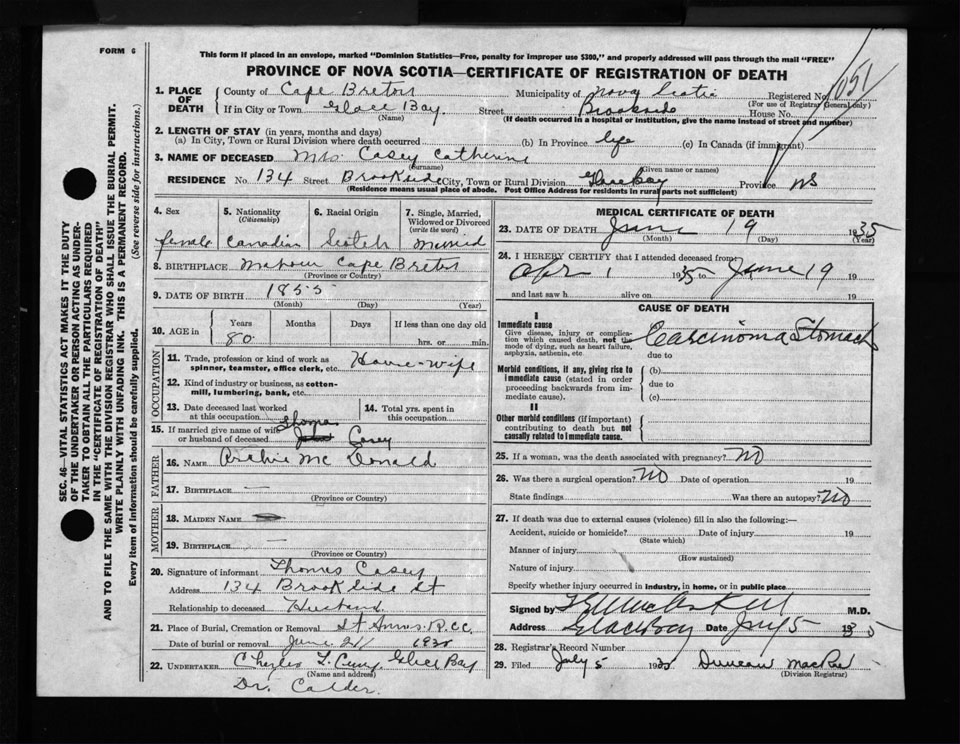 FORM 6
This form if placed in an envelope, marked "Dominion Statistics—Free, penalty for improper use $300," and properly addressed will pass through the mail "FREE"
PROVINCE OF NOVA SCOTIA—CERTIFICATE OF REGISTRATION OF DEATH
SEC. 46—VITAL STATISTICS ACT MAKES IT THE DUTY
OF THE UNDERTAKER OR PERSON ACTING AS UNDER-
TAKER TO OBTAIN ALL THE PARTICULARS REQUIRED
IN THE "CERTIFICATE OF REGISTRATION OF DEATH"
AND TO FILE THE SAME WITH THE DIVISION REGISTRAR WHO SHALL ISSUE THE BURIAL PERMIT.
WRITE PLAINLY WITH UNFADING INK. THIS IS A PERMANENT RECORD.
Every item of information should be carefully supplied. (See reverse side for instructions.)
1. PLACE OF DEATH County of Cape Breton Municipality of Nova Scotia Registered No. 051
(For use of Registrar General only)
If in City or Town Glace Bay Street Brookside House No.
(Name) (If death occurred in a hospital or institution, give the name instead of street and number)
2. LENGTH OF STAY (in years, months and days)
(a) In City, Town or Rural Division where death occurred (b) In Province life (c) In Canada (if immigrant)
3. NAME OF DECEASED Mrs. Casey Catherine
(Surname) (Given name or names)
RESIDENCE No. 134 Street Brookside City, Town or Rural Division Glace Bay Province NS
(Residence means usual place of abode. Post Office Address for residents in rural parts not sufficient)
4. Sex 5. Nationality (Citizenship) 6. Racial Origin 7. Single, Married, Widowed or Divorced (write the word)
female Canadian Scotch Married
8. BIRTHPLACE Cape Breton
(Province or Country)
9. DATE OF BIRTH 1855
(Month) (Day) (Year)
10. AGE IN Years Months Days If less than one day old
80 hrs. or min.
OCCUPATION
11. Trade, profession or kind of work as
spinner, teamster, office clerk, etc. House-wife
12. Kind of industry or business, as cotton-
mill, lumbering, bank, etc.
13. Date deceased last worked at this occupation 14. Total yrs. spent in this occupation
15. If married give name of wife or husband of deceased Thomas Casey
FATHER
16. NAME Archie Mc Donald
17. BIRTHPLACE —
(Province or Country)
MOTHER
18. MAIDEN NAME —
19. BIRTHPLACE —
(Province or Country)
20. Signature of informant Thomas Casey
Address 134 Brookside St
Relationship to deceased Husband
21. Place of Burial, Cremation or Removal St Anns. R.C.C.
Date of burial or removal June 21 1935
22. UNDERTAKER Charles F. Curry Glace Bay
(Name and address)
Dr. Calder.
MEDICAL CERTIFICATE OF DEATH
23. DATE OF DEATH June 19 1935
(Month) (Day) (Year)
24. I HEREBY CERTIFY that I attended deceased from
Apr 1 1935 to June 19 19
and last saw h alive on 19
CAUSE OF DEATH
I
Immediate cause
Give disease, injury or complica-
tion which caused death, not the
mode of dying, such as heart failure,
asphyxia, asthenia, etc
(a) Carcinoma Stomach
due to
Morbid conditions, if any, giving rise to
immediate cause (stated in order
proceeding backwards from im-
mediate cause).
(b)
due to
(c)
II
Other morbid conditions (if important)
contributing to death but not
causally related to immediate cause.
25. If a woman, was the death associated with pregnancy? NO
26. Was there a surgical operation? NO Date of operation 19
State findings Was there an autopsy? NO
27. If death was due to external causes (violence) fill in also the following:—
Accident, suicide or homicide? Date of injury 19
(State which)
Manner of injury
(How sustained)
Nature of injury
Specify whether injury occurred in industry, in home, or in public place
Signed by M.D.
Address Glace Bay Date July 5 1935
28. Registrar's Record Number
29. Filed July 5 1935 Duncan MacRae
(Division Registrar)